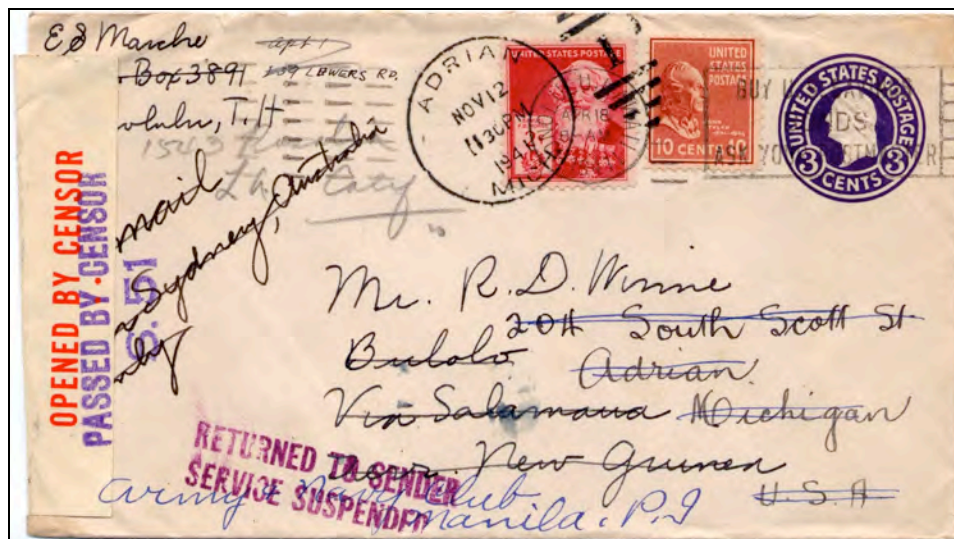 E S Marche
Box 3891
Apt 1
239 LEWERS RD.
T. H
1540
mail
Sydney, Australia
only
OPENED BY CENSOR
PASSED BY CENSOR
S. 51
ADRIAN
NOV 12
1 30 PM
194
MICH.
UNITED STATES POSTAGE
APR 18
UNITED
STATES
POSTAGE
10 CENTS 10
BUY
ASK YO
UNITED STATES POSTAGE
3 CENTS 3
Mr. R. D. Winne
204 South Scott St
Bulolo
Adrian
Via Salamaua Michigan
New Guinea
U.S.A
RETURNED TO SENDER
SERVICE SUSPENDED
Army & Navy Club
Manila. P.I